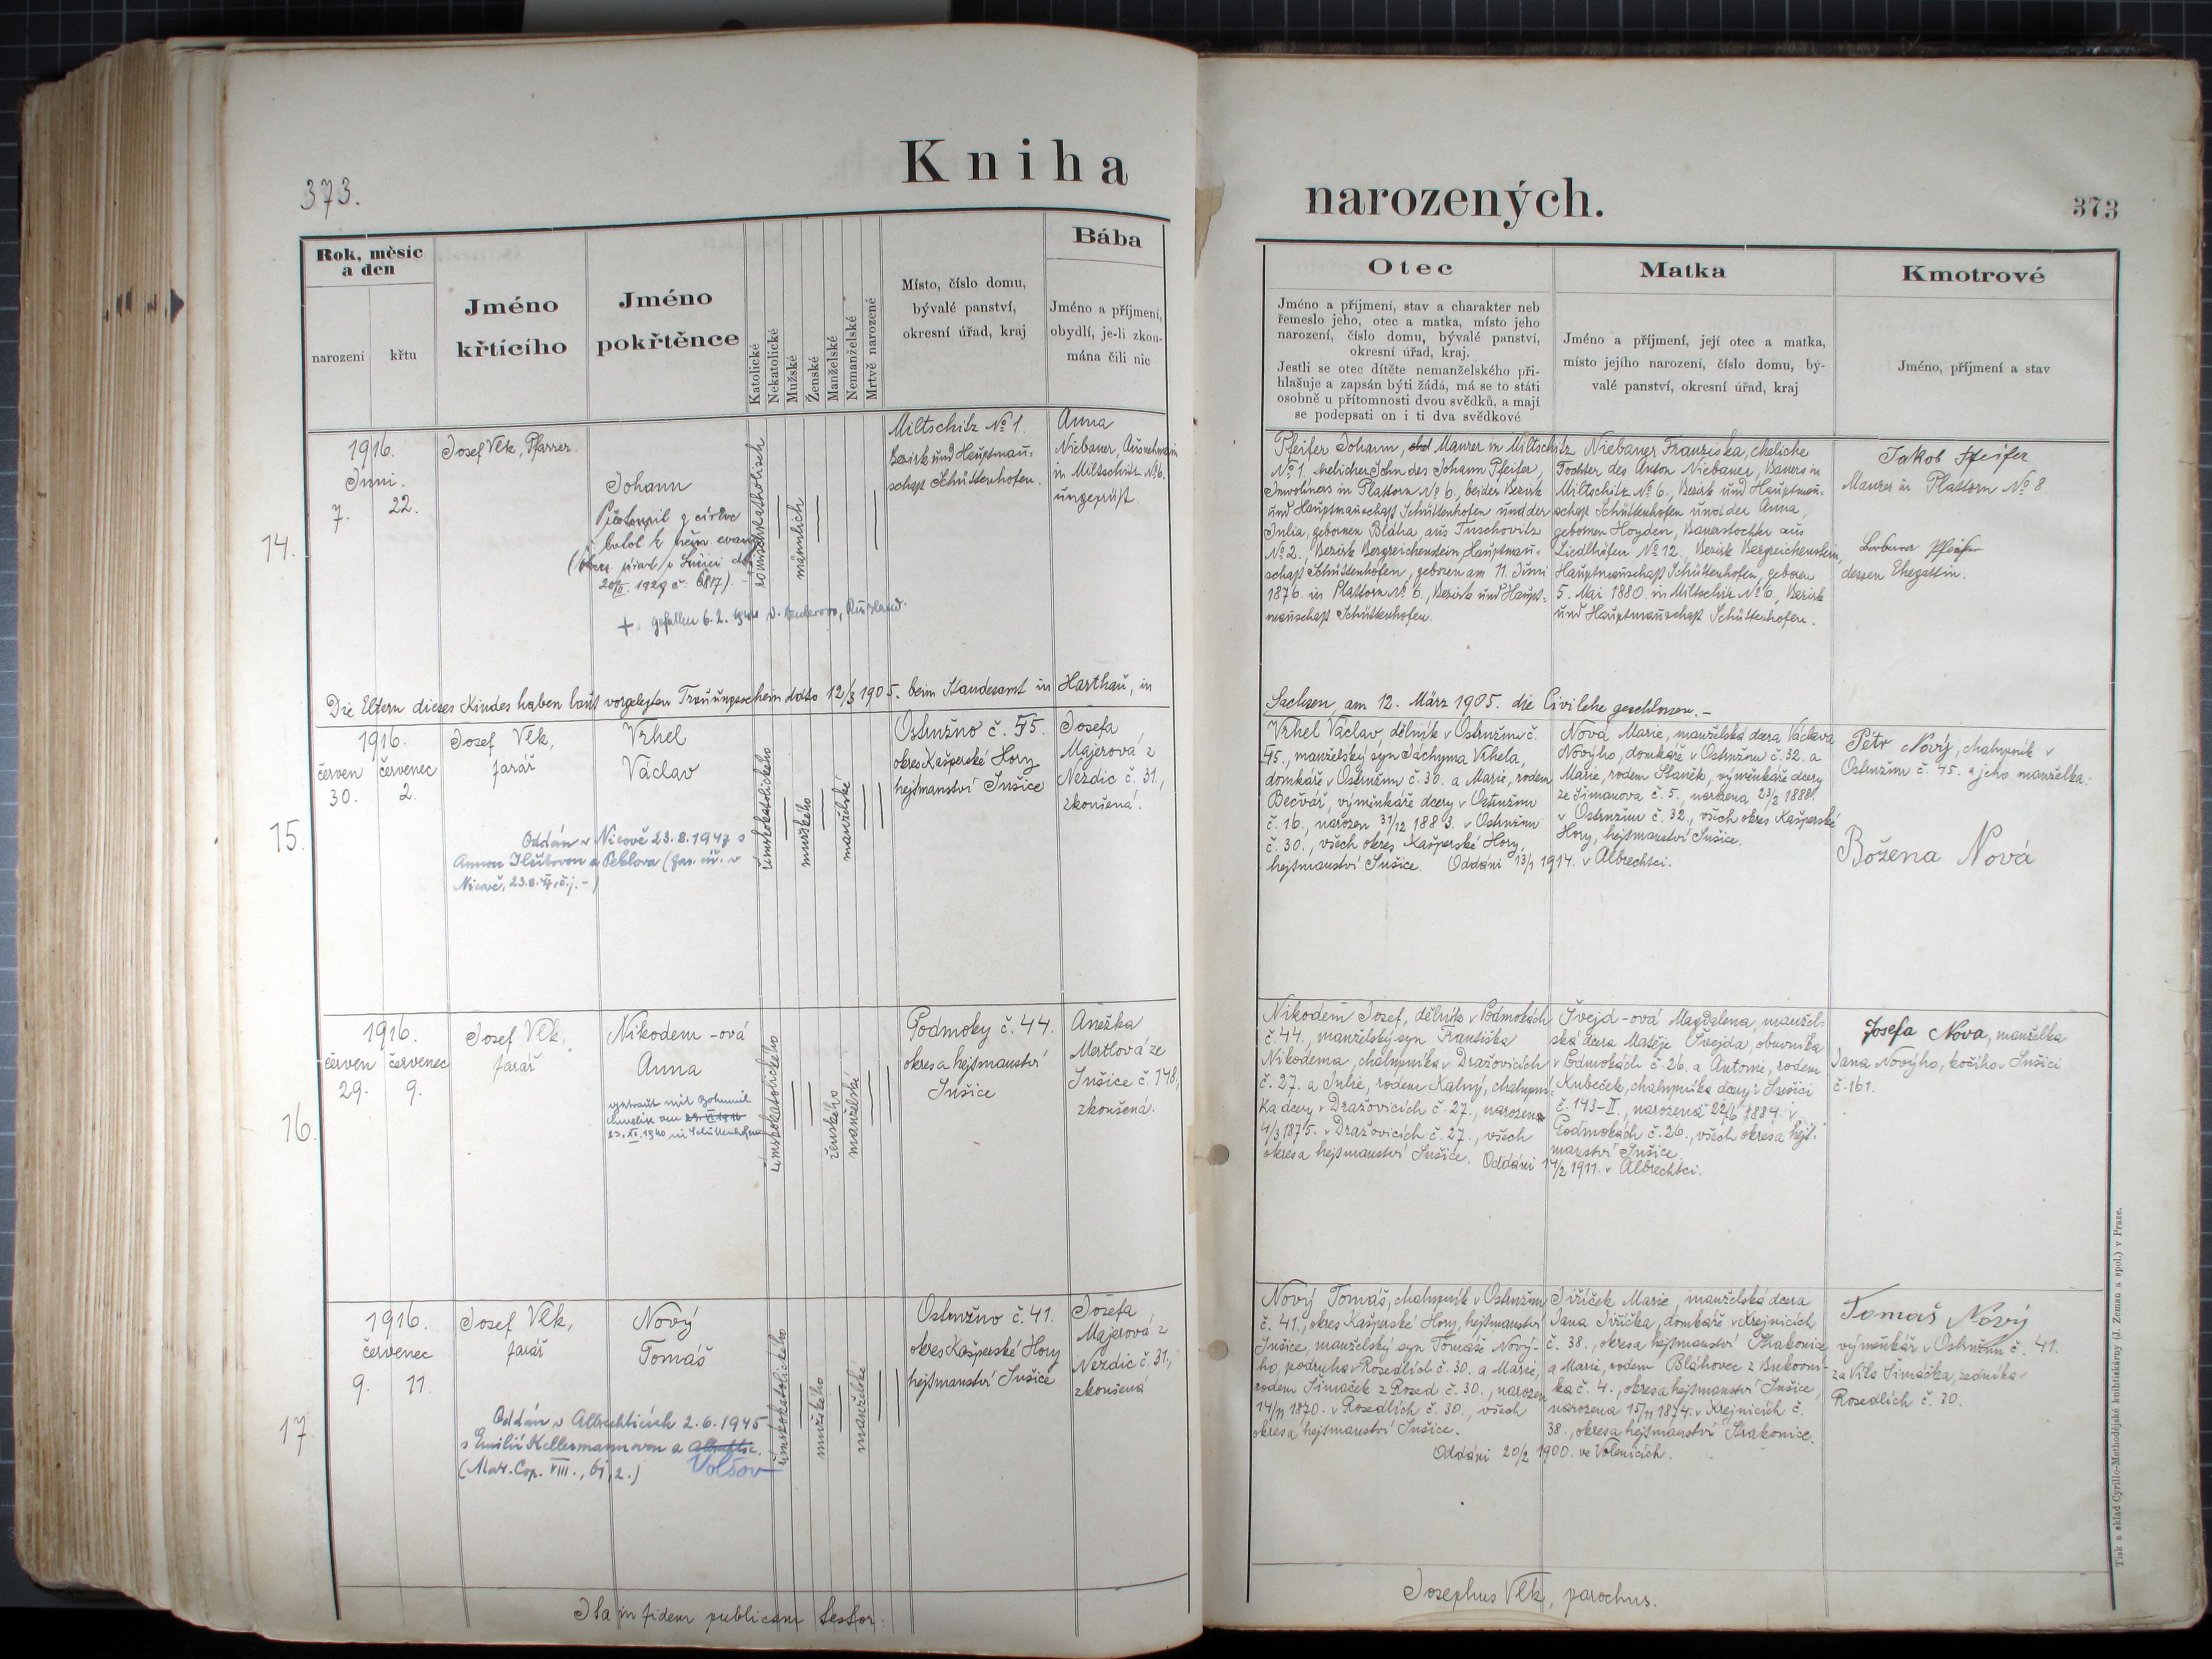 373.
Kniha
Rok, měsíc
a den
narození
křtu
Jméno
křtícího
Jméno
pokřtěnce
Katolické
Nekatolické
Mužské
Ženské
Manželské
Nemanželské
Mrtvě narozené
Místo, číslo domu,
bývalé panství,
okresní úřad, kraj
Bába
Jméno a příjmení,
obydlí, je-li zkou-
mána čili nic
14.
1916.
Juni.
7. 22.
Josef Vlk, Pfarrer.
Johann
20/II. 1929 č. 6817).
+ gefallen 6. 2. Rußland.
römischkatholisch
männlich
Miltschitz № 1.
Bezirk und Hauptmañ-
schaft Schüttenhofen.
Anna
Niebauer,
in Miltschitz № 6.
ungeprüft.
Die Eltern dieses Kindes haben laut vorgelegten Trauungsschein ddto 12/3 1905. beim Standesamt in Harthau, in
15.
1916.
červen červenec
30. 2.
Josef Vlk,
farář
Vrhel
Václav
Oddán v Nicově 23.8.1947 s
Nicově, 23.8.47, č.j. -)
římskokatolického
mužského
manželské
Ostružno č. 55.
okres Kašperské Hory
hejtmanství Sušice
Josefa
Majerová z
Nezdic č. 31.,
zkoušená.
16.
1916.
červen červenec
29. 9.
Josef Vlk,
farář
Nikodem -ová
Anna
getraut mit Bohumil
23. XI. 1940 in Schüttenhofen
římskokatolického
ženského
manželské
Podmoky č. 44.
okres a hejtmanství
Sušice
Anežka
Mertlová ze
Sušice č. 178,
zkoušená.
17.
1916.
červenec
9. 11.
Josef Vlk,
farář
Nový
Tomáš
Oddán v Albrechticích 2.6.1945
s Emilií Kellermannovou z
(Matr. Cop. VIII., 61, 2.) Volšov
římskokatolického
mužského
manželské
Ostružno č. 41.
okres Kašperské Hory
hejtmanství Sušice
Josefa
Majerová z
Nezdic č. 31,
zkoušená
Ita in fidem publicam testor:
narozených.
373
Otec
Jméno a příjmení, stav a charakter neb
řemeslo jeho, otec a matka, místo jeho
narození, číslo domu, bývalé panství,
okresní úřad, kraj.
Jestli se otec dítěte nemanželského při-
hlašuje a zapsán býti žádá, má se to státi
osobně u přítomnosti dvou svědků, a mají
se podepsati on i ti dva svědkové
Matka
Jméno a příjmení, její otec a matka,
místo jejího narození, číslo domu, bý-
valé panství, okresní úřad, kraj
Kmotrové
Jméno, příjmení a stav
Pfeifer Johann, Maurer in Miltschitz
№ 1. ehelicher Sohn des Johann Pfeifer,
Inwohners in Plattorn № 6., beider Bezirk
und Hauptmañschaft Schüttenhofen und der
Julia, gebornen Bláha, aus Tuschovitz
№ 2., Bezirk Bergreichenstein, Hauptmañ-
schaft Schüttenhofen, geboren am 11. Juni
1876. in Plattorn № 6., Bezirk und Haupt-
mañschaft Schüttenhofen.
Niebauer Franziska, eheliche
Tochter des Anton Niebauer, Bauers in
Miltschitz № 6., Bezirk und Hauptmañ-
schaft Schüttenhofen und der Anna,
gebornen Hoyden, Bauerstochter aus
Liedlhöfen № 12., Bezirk Bergreichenstein,
Hauptmañschaft Schüttenhofen, geboren
5. Mai 1880. in Miltschitz № 6., Bezirk
und Hauptmañschaft Schüttenhofen.
Jakob Pfeifer
Maurer in Plattorn № 8.
Barbara Pfeifer
dessen Ehegattin.
Sachsen, am 12. März 1905. die Civilehe geschlossen. -
Vrhel Václav, dělník v Ostružnu č.
55., manželský syn Jáchyma Vrhela,
domkáře v Ostružnu č. 30. a Marie, rodem
Bečvář, výměnkáře dcery v Ostružnu
č. 16., narozen 31/12 1883. v Ostružnu
č. 30., všech okres Kašperské Hory,
hejtmanství Sušice. Oddáni 13/1 1914. v Albrechtci.
Nová Marie, manželská dcera Václava
Nového, domkáře v Ostružnu č. 32. a
Marie, rodem Staněk, výměnkáře dcery
ze Šimanova č. 5., narozena 23/2 1888.
v Ostružnu č. 32., všech okres Kašperské
Hory, hejtmanství Sušice.
Petr Nový, chalupník v
Ostružnu č. 45. a jeho manželka:
Božena Nová
Nikodem Josef, dělník v Podmokách
č. 44., manželský syn Františka
Nikodema, chalupníka v Dražovicích
č. 27. a Julie, rodem Kalný, chalupní-
ka dcery v Dražovicích č. 27., narozen
4/3 1875. v Dražovicích č. 27., všech
okres a hejtmanství Sušice. Oddáni 14/2 1911. v Albrechtci.
Švejd-ová Magdalena, manžel-
ská dcera Matěje Švejda, obuvníka
v Podmokách č. 26. a Antonie, rodem
Kubeček, chalupníka dcery v Sušici
č. 143-II., narozená 22/6 1884. v
Podmokách č. 26., všech okres a hejt-
manství Sušice.
Josefa Nova, manželka
Jana Nového, kočího v Sušici
č. 161.
Nový Tomáš, chalupník v Ostružnu
č. 41., okres Kašperské Hory, hejtmanství
Sušice, manželský syn Tomáše Nový-
ho, podruha v Rosedlích č. 30. a Marie,
rodem Šimáček z Rosed č. 30., narozen
14/11 1870. v Rosedlích č. 30., všech
okres a hejtmanství Sušice.
Jiříček Marie, manželská dcera
Jana Jiříčka, domkáře v Krejnicích
č. 38., okres a hejtmanství Strakonice
a Marie, rodem Bláhovec z Bukovní-
ka č. 4., okres a hejtmanství Sušice,
narozena 15/11 1874. v Krejnicích č.
38., okres a hejtmanství Strakonice.
Oddáni 20/2 1900. ve Volenicích.
Tomáš Nový
výměnkář v Ostružnu č. 41.
za Víta Šimáčka, zedníka v
Rosedlích č. 30.
Josephus Vlk, parochus.
Tisk a sklad Cyrillo-Methodějské knihtiskárny (J. Zeman a spol.) v Praze.